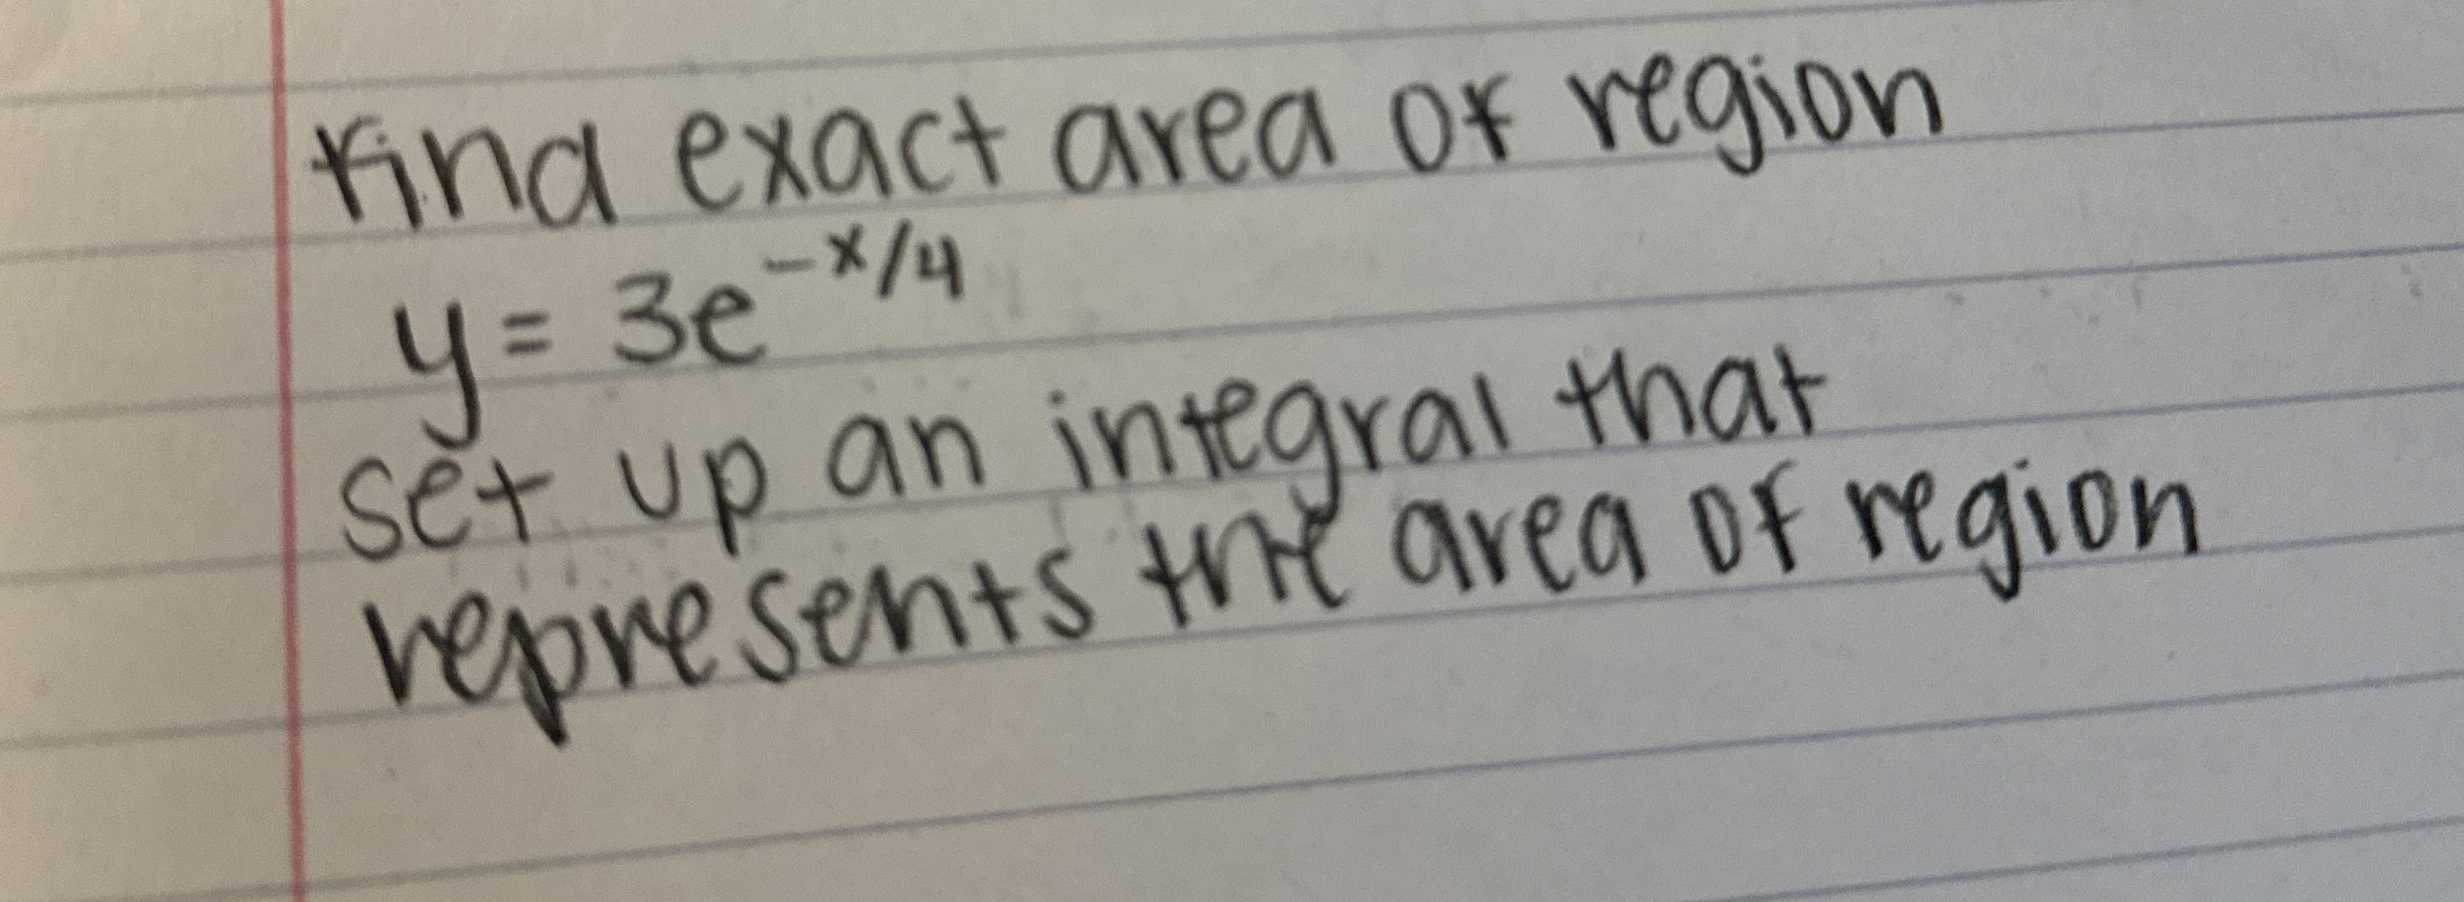 find exact area of region
y = 3e^{-x/4}
set up an integral that
represents the area of region